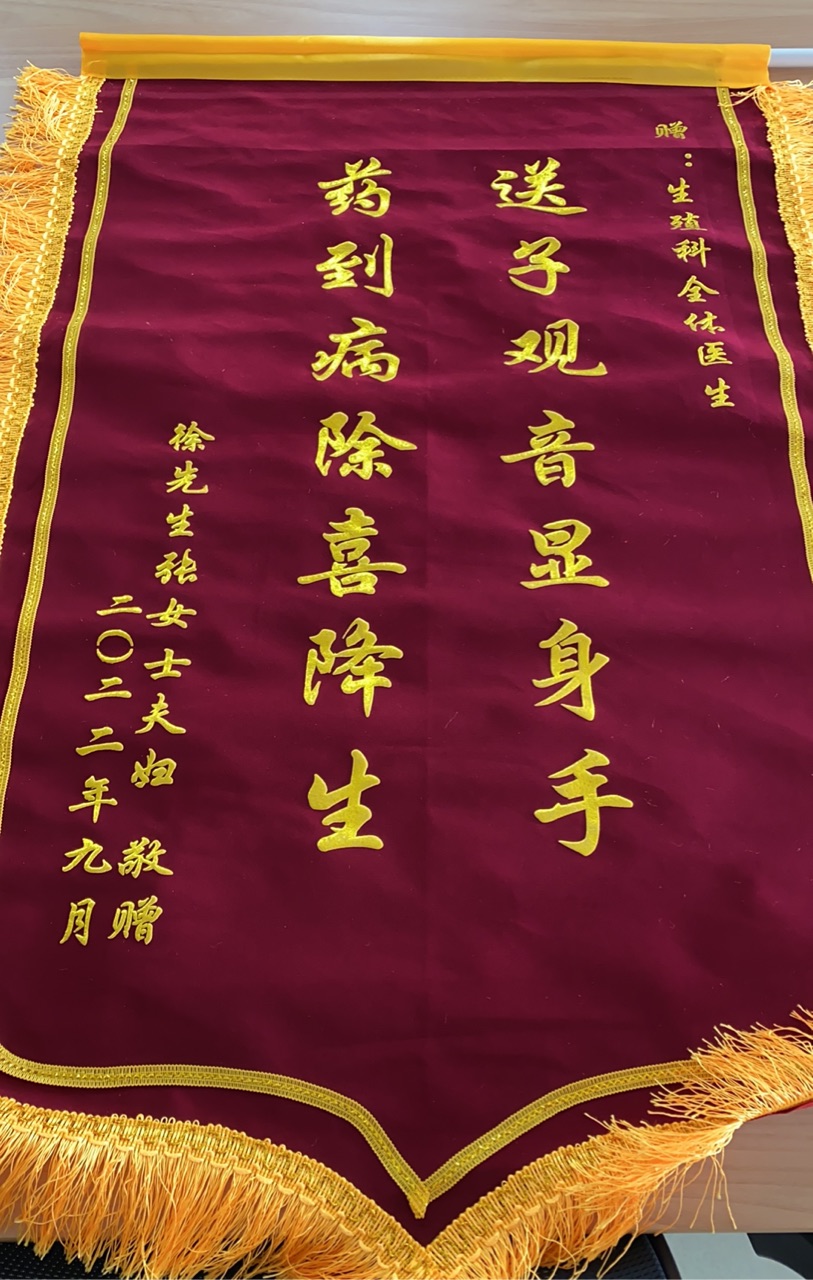 赠：生殖科全体医生
送子观音显身手
药到病除喜降生
徐先生张女士夫妇 敬赠
二〇二二年九月